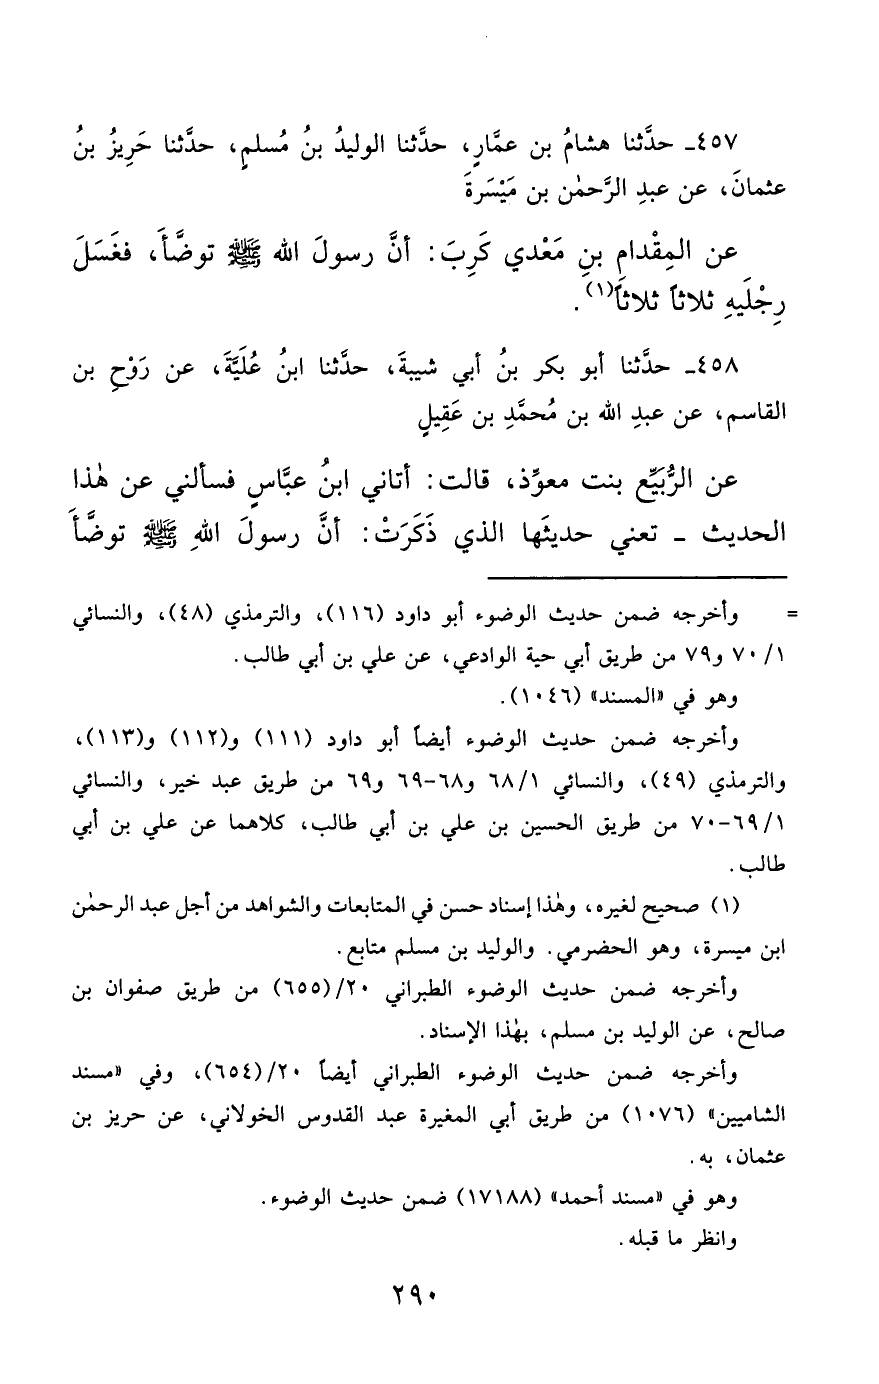 ٤٥٧ـ حدَّثنا هشامُ بن عمَّارٍ، حدَّثنا الوليدُ بنُ مُسلمٍ، حدَّثنا حَرِيزُ بنُ
عثمانَ، عن عبدِ الرَّحمٰن بن مَيْسَرةَ
عن المِقْدامِ بنِ مَعْدي كَرِبَ: أنَّ رسولَ الله ﷺ توضَّأَ، فغَسَلَ
رِجْلَيهِ ثلاثاً ثلاثاً(١).
٤٥٨ـ حدَّثنا أبو بكر بنُ أبي شيبةَ، حدَّثنا ابنُ عُلَيَّةَ، عن رَوْحِ بن
القاسم، عن عبدِ الله بن مُحمَّدِ بن عَقِيلٍ
عن الرُّبَيِّع بنت معوِّذ، قالت: أتاني ابنُ عبَّاسٍ فسألني عن هٰذا
الحديث ـ تعني حديثَها الذي ذَكَرَتْ: أنَّ رسولَ اللهِ ﷺ توضَّأَ
= وأخرجه ضمن حديث الوضوء أبو داود (١١٦)، والترمذي (٤٨)، والنسائي
١/ ٧٠ و٧٩ من طريق أبي حية الوادعي، عن علي بن أبي طالب.
وهو في «المسند» (١٠٤٦).
وأخرجه ضمن حديث الوضوء أيضاً أبو داود (١١١) و(١١٢) و(١١٣)،
والترمذي (٤٩)، والنسائي ١/ ٦٨ و٦٨-٦٩ و٦٩ من طريق عبد خير، والنسائي
١/ ٦٩-٧٠ من طريق الحسين بن علي بن أبي طالب، كلاهما عن علي بن أبي
طالب.
(١) صحيح لغيره، وهٰذا إسناد حسن في المتابعات والشواهد من أجل عبد الرحمٰن
ابن ميسرة، وهو الحضرمي. والوليد بن مسلم متابع.
وأخرجه ضمن حديث الوضوء الطبراني ٢٠/(٦٥٥) من طريق صفوان بن
صالح، عن الوليد بن مسلم، بهٰذا الإسناد.
وأخرجه ضمن حديث الوضوء الطبراني أيضاً ٢٠/(٦٥٤)، وفي «مسند
الشاميين» (١٠٧٦) من طريق أبي المغيرة عبد القدوس الخولاني، عن حريز بن
عثمان، به.
وهو في «مسند أحمد» (١٧١٨٨) ضمن حديث الوضوء.
وانظر ما قبله.
٢٩٠